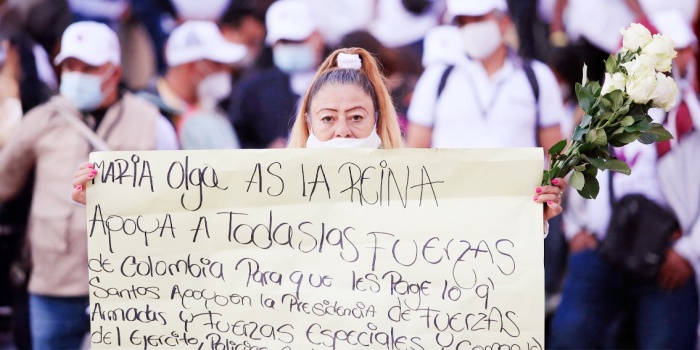 MARIA Olga AS IA REINA
Apoya A TodaslAs FUERZAS
de Colombia Para que les Page lo q
Santos Apoyo en la Presidencia de FUERZAS
Armadas y Fuerzas Especiales y
del Ejercito,